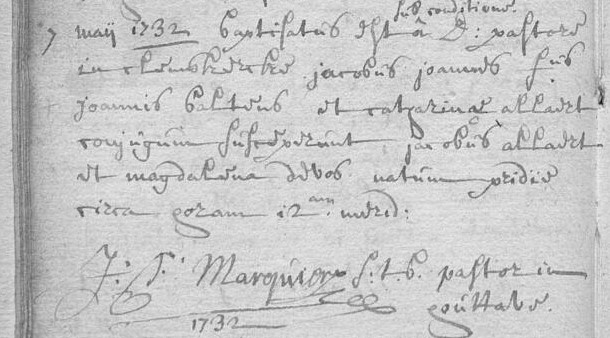 sub conditione.
7 maij 1732 baptisatus est â D: pastore
in clemskercke jacobus joannes f̄us
joannis baltens et catharinæ allaert
conjugum susceperunt jacobus allaert
et magdalena devos natum pridie
circa horam 12am merid:
Marquier S. T. B. pastor in
houttave.
1732